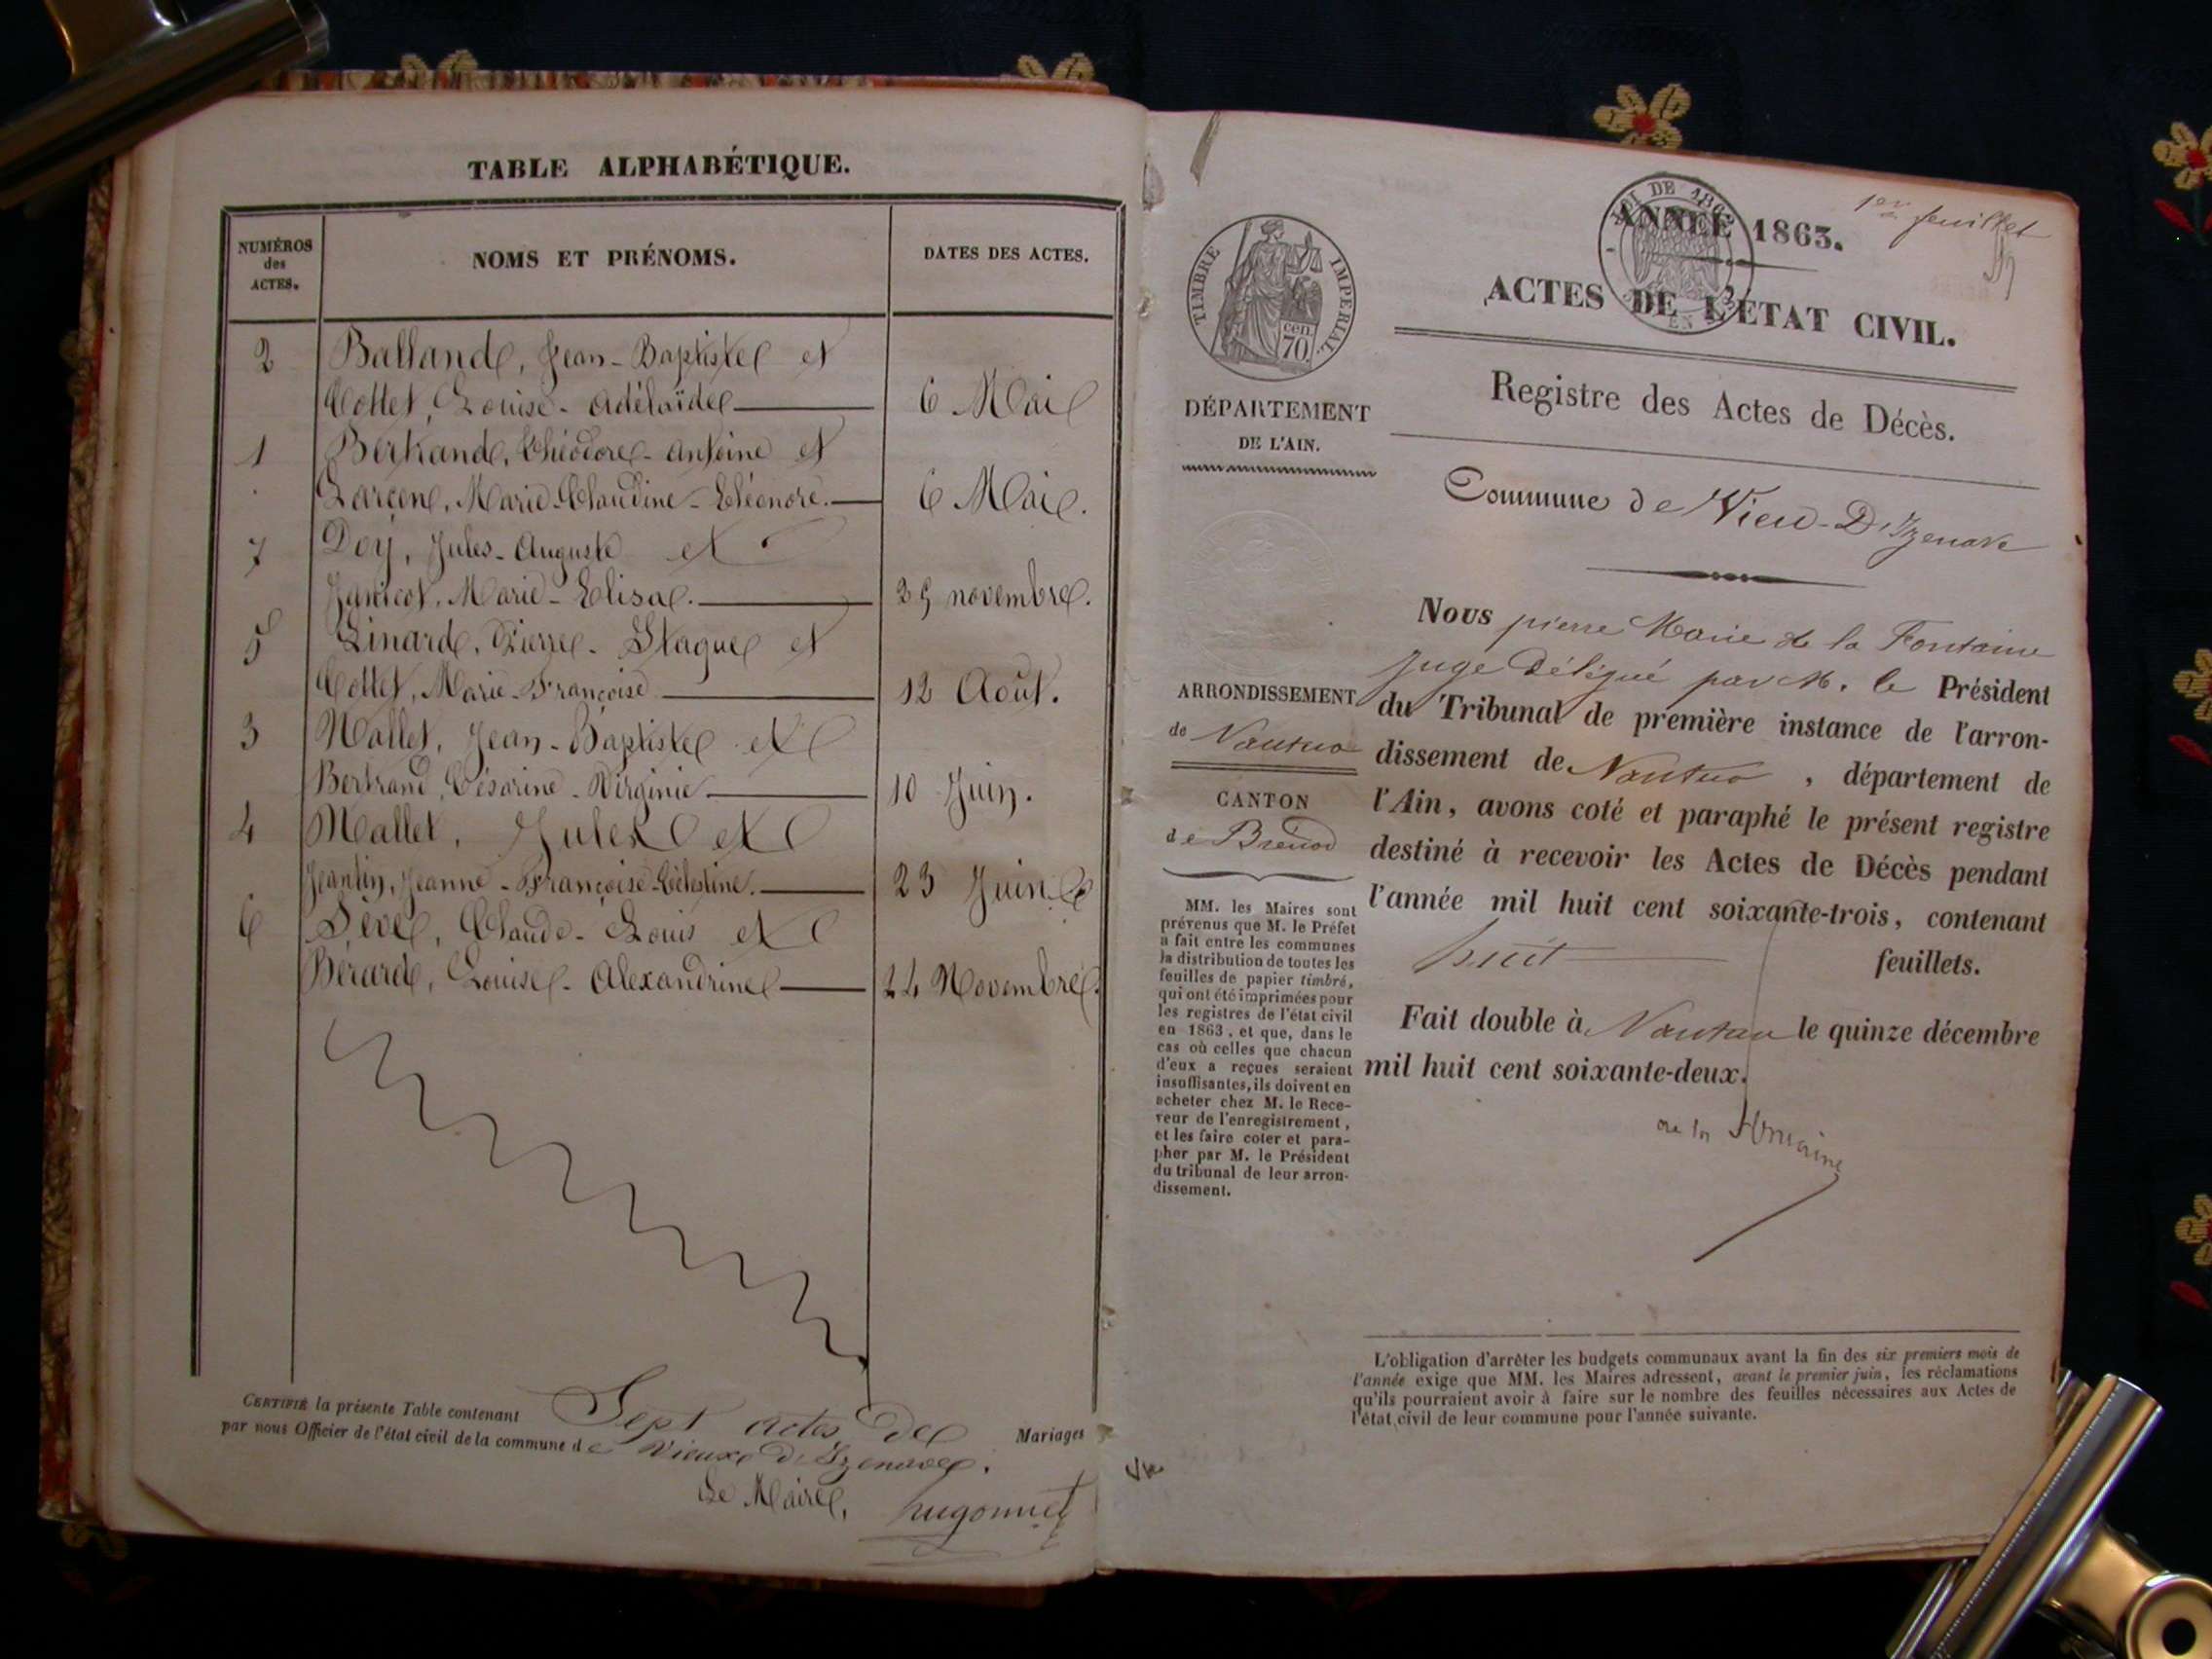 TABLE ALPHABÉTIQUE.
NUMÉROS
des
ACTES.
NOMS ET PRÉNOMS.
DATES DES ACTES.
2 Balland, Jean-Baptiste et
Collet, Louise-Adélaïde 6 Mai
1 Bertrand, Théodore-Antoine et
Marie-Claudine-Eléonore. 6 Mai.
7 Doy, Jules-Auguste et
Janicot, Marie-Elisa. 25 novembre.
5 Linard, Pierre- et
Collet, Marie-Françoise 12 Août.
3 Mallet, Jean-Baptiste et
Bertrand, Césarine-Virginie 10 Juin.
4 Mallet, Jules et
Jeantin, Jeanne-Françoise-Célestine. 23 Juin
6 Sève, Claude-Louis et
Bérard, Louise-Alexandrine 24 Novembre.
CERTIFIÉ la présente Table contenant Sept actes de Mariages
par nous Officier de l'état civil de la commune de Vieux d'Izenave.
Le Maire, hugonnet
1er feuillet
LOI DE 1862
ANNÉE 1863.
TIMBRE IMPERIAL.
cen.
70.
ACTES DE L'ÉTAT CIVIL.
EN
Registre des Actes de Décès.
DÉPARTEMENT
DE L'AIN.
Commune de Vieu-D'Izenave
Nous pierre Marie de la Fontaine
Juge Délégué par M. le Président
du Tribunal de première instance de l'arron-
dissement de Nantua , département de
l'Ain, avons coté et paraphé le présent registre
destiné à recevoir les Actes de Décès pendant
l'année mil huit cent soixante-trois, contenant
huit feuillets.
Fait double à Nantua le quinze décembre
mil huit cent soixante-deux.
de la Fontaine
ARRONDISSEMENT
de Nantua
CANTON
de Brénod
MM. les Maires sont
prévenus que M. le Préfet
a fait entre les communes
la distribution de toutes les
feuilles de papier timbré,
qui ont été imprimées pour
les registres de l'état civil
en 1863, et que, dans le
cas où celles que chacun
d'eux a reçues seraient
insuffisantes, ils doivent en
acheter chez M. le Rece-
veur de l'enregistrement,
et les faire coter et para-
pher par M. le Président
du tribunal de leur arron-
dissement.
L'obligation d'arrêter les budgets communaux avant la fin des six premiers mois de
l'année exige que MM. les Maires adressent, avant le premier juin, les réclamations
qu'ils pourraient avoir à faire sur le nombre des feuilles nécessaires aux Actes de
l'état civil de leur commune pour l'année suivante.